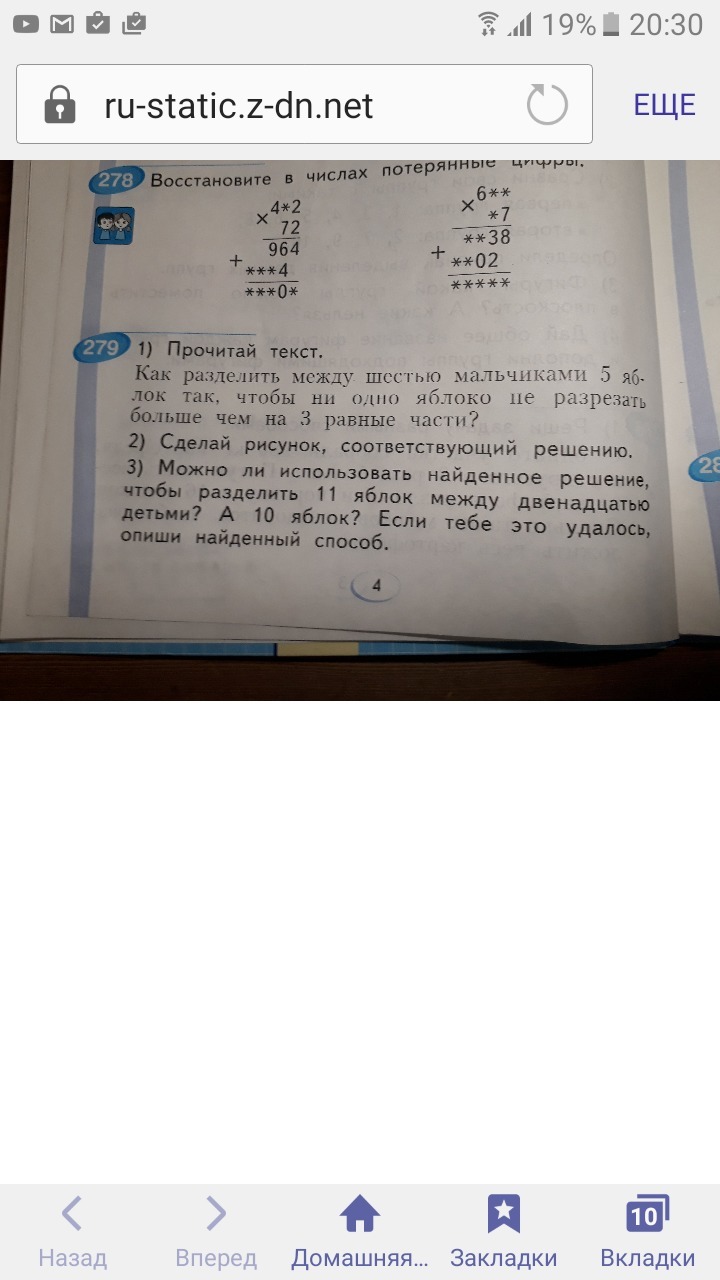 19% 20:30
ru-static.z-dn.net ЕЩЕ
278 Восстановите в числах потерянные цифры.
× 4*2
72
964
+ ***4
***0*
× 6**
*7
**38
+ **02
*****
279 1) Прочитай текст.
Как разделить между шестью мальчиками 5 яб-
лок так, чтобы ни одно яблоко не разрезать
больше чем на 3 равные части?
2) Сделай рисунок, соответствующий решению.
3) Можно ли использовать найденное решение,
чтобы разделить 11 яблок между двенадцатью
детьми? А 10 яблок? Если тебе это удалось,
опиши найденный способ.
4
28
10
Назад Вперед Домашняя... Закладки Вкладки